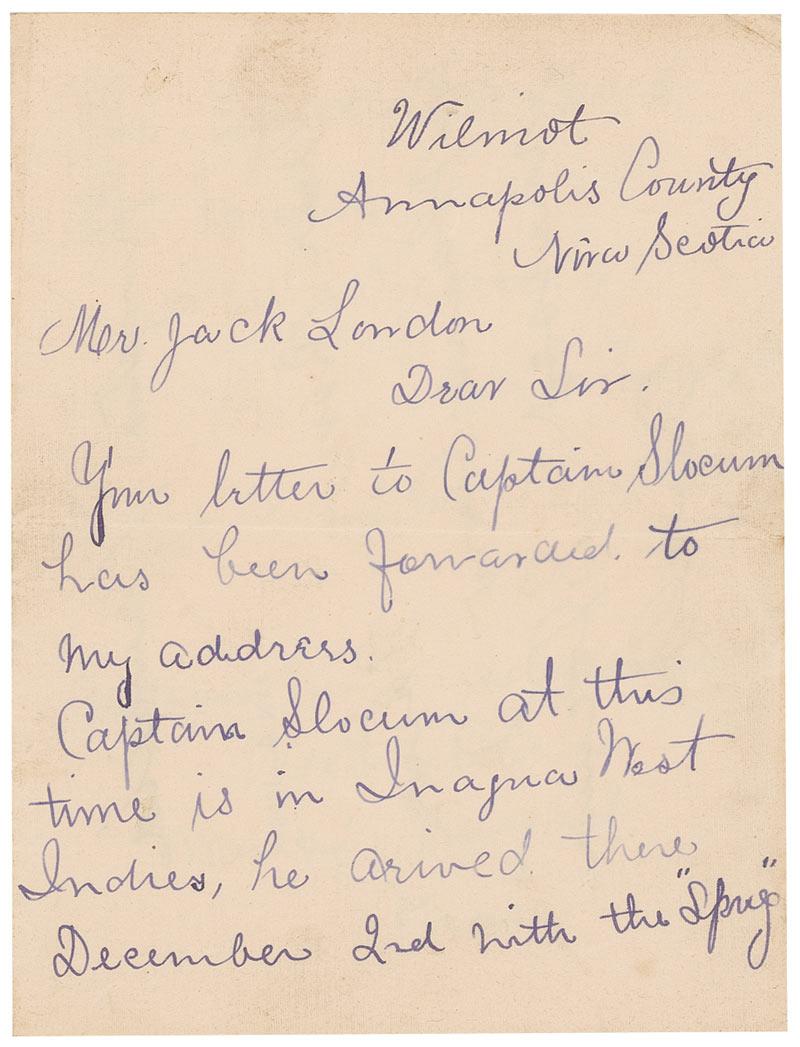 Wilmot
Annapolis County
Nova Scotia
Mr. Jack London
Dear Sir.
Your letter to Captain Slocum
has been forwarded. to
my address.
Captain Slocum at this
time is in Inagua West
Indies, he arived. there
December 2nd with the "Spray"